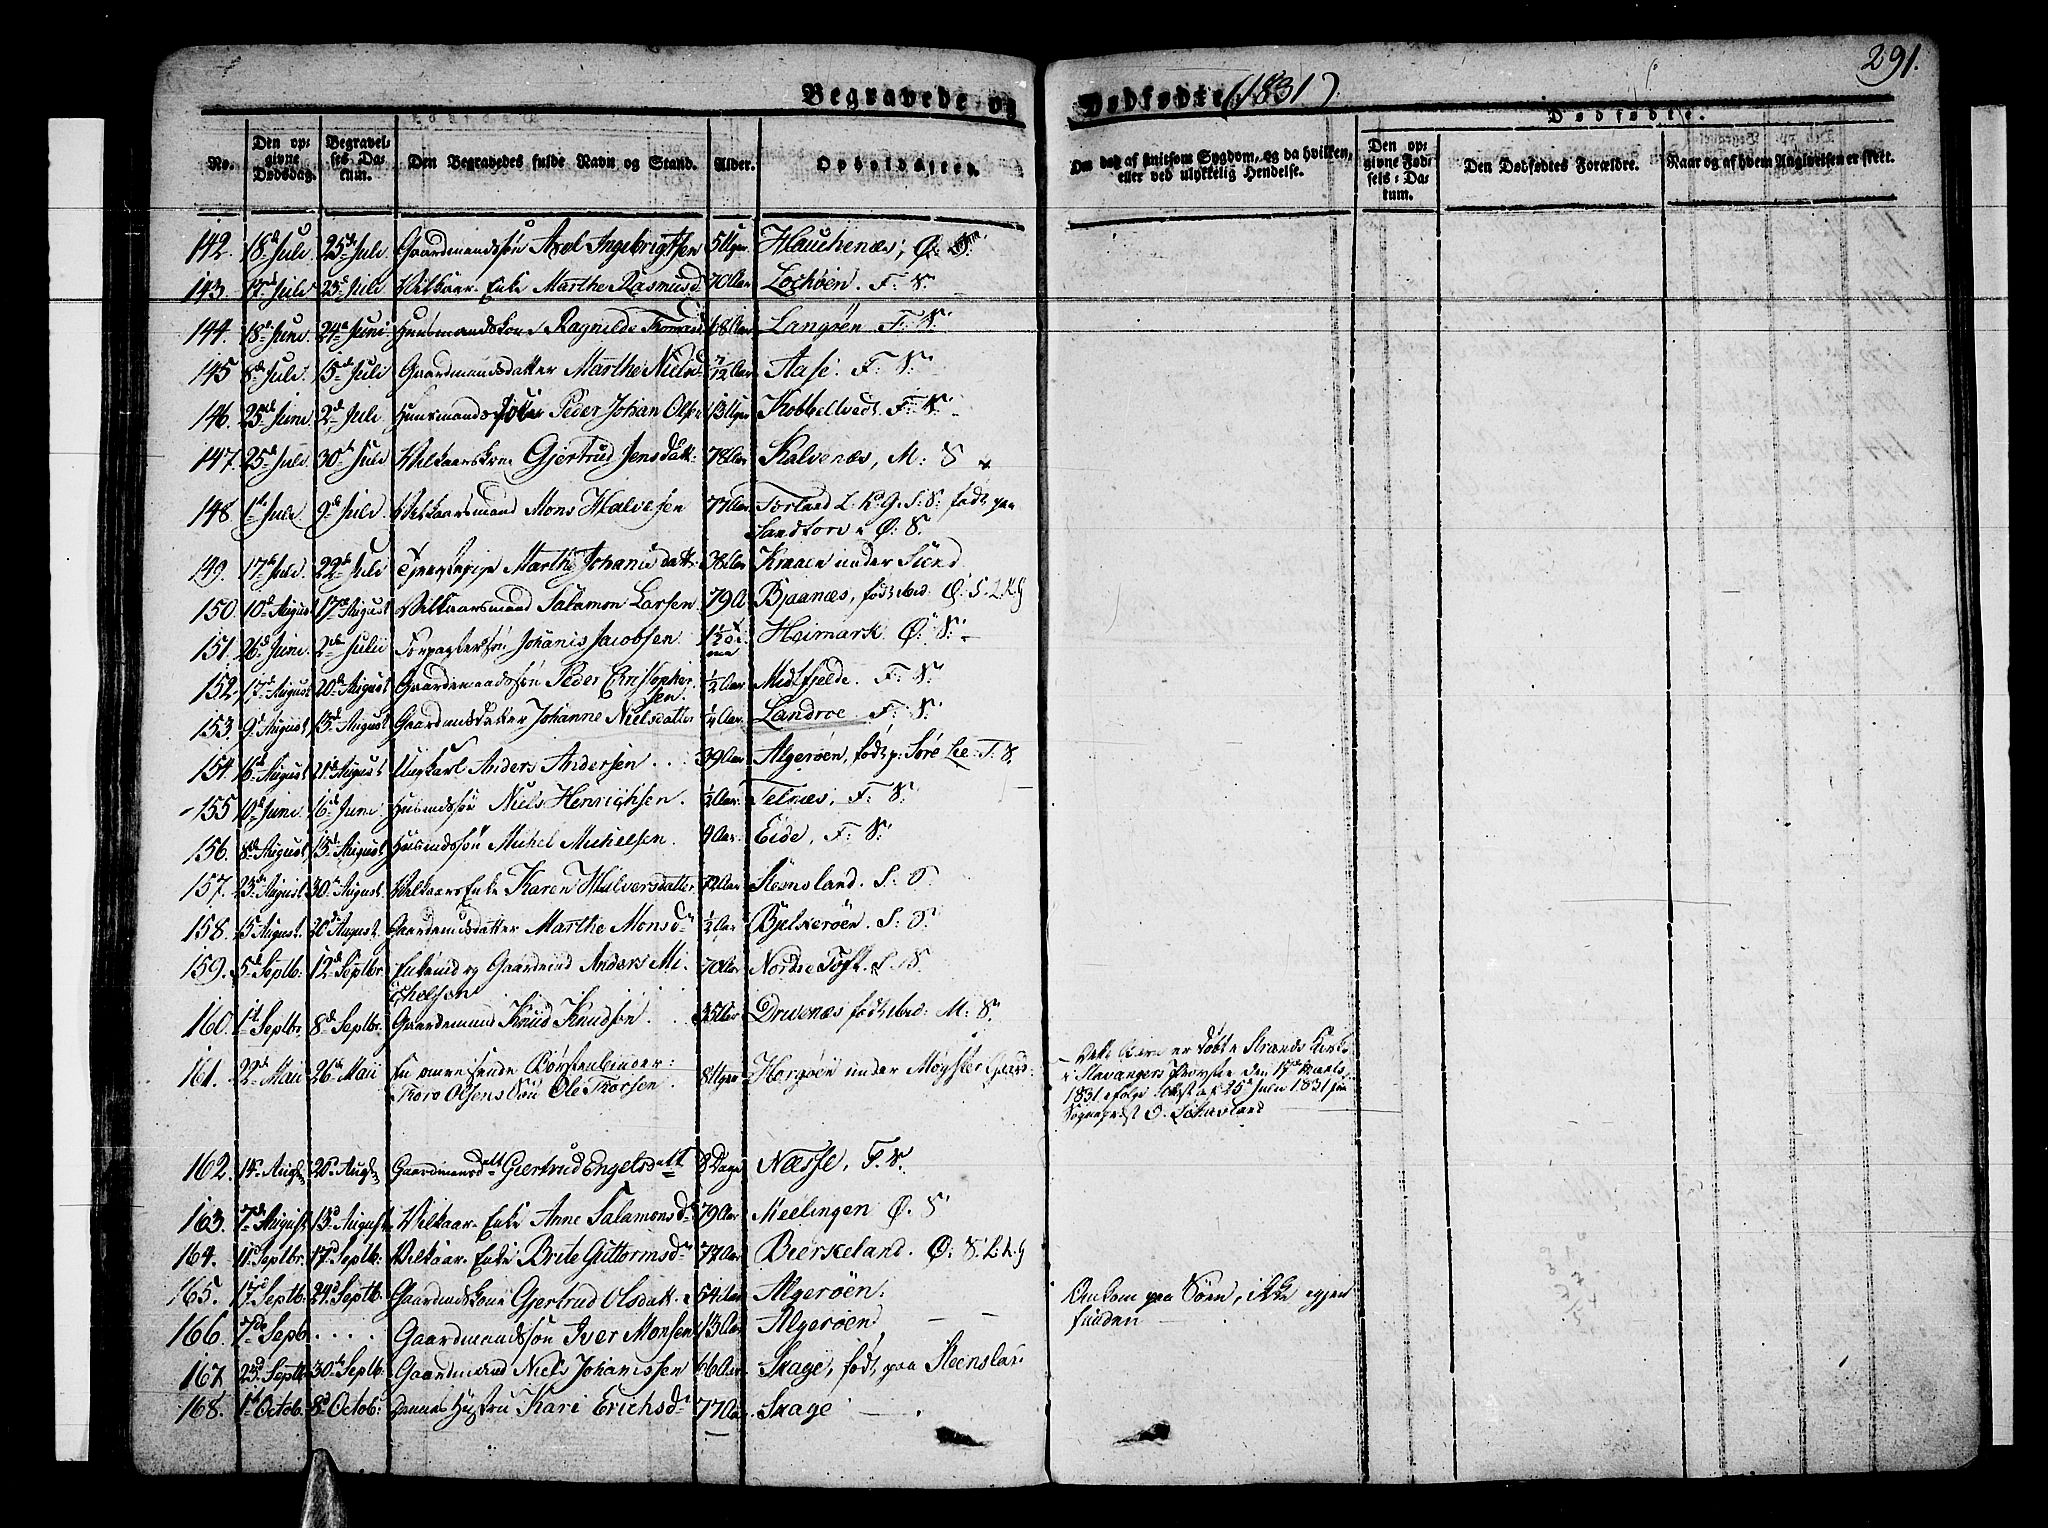 291.
Begravede og Dødfødte. (1831)
Dødfødte.
No.
Den opgivne Dødsdag.
Begravelses-Datum.
Den Begravedes fulde Navn og Stand.
Alder.
Opholdssted.
Om død af smitsom Sygdom, og da hvilken, eller ved ulykkelig Hendelse.
Den opgivne Fødsels-Datum.
Den Dødfødtes Forældre.
Naar og af hvem Anglivelsen er skeet.
142. 18d Juli 25de Juli Gaardmandssøn Axel Ingebrigtsen 5 Uger Hauchenæs, Ø. S.
143. 17d Juli 23d Juli Vilkaar. Enke Marthe Rasmusd 70 Aar Lochøen. F. S.
144. 18d Juni 24d Juni Huusmandskone Ragnilde 68 Aar Langøen F. S.
145 8de Juli. 15de Juli Gaardmandsdatter Marthe Nielsd 7/12 Aar Aase. F. S.
146. 25de Juni 2de Juli Huusmands Peder Johan 13 Uger Kobbeltvedt. F. S.
147. 25d Juli 30d Juli Vilkaarskone Gjertrud Jensdatt: 78 Aar Kalvenæs, M: S
148. 1te Juli 9de Juli Vilkaarsmand Mons Halvesen 77 Aar Torland L. K. G. S. S. født paa
Sandtorv i Ø: S.
149. 17de Juli. 22de Juli Marthe Johannisdatt: 38 Aar Kraaen under Sund
150. 10d August 17d August Vilkaarsmand Salamon Larsen 79 A Bjaanæs, født ibid: Ø: S. L. K. G
151. 26d Juni 2de Julii Forpagtersøn Johanis Jacobsen 1½ Heimark Ø: S.
152. 17d August 20de August Gaardemandssøn Peder Christopher-
sen. ½ Aar Midtfjelde. F: S.
153. 9d August 15d August Gaardmdsdatter Johanne Nielsdatter ¼ Aar. Landroe. F: S.
154. 16d August 21d August Ungkarl Anders Andersen . . . 39 Aar Algerøen, født p: Søre Lie. F. S.
155 10d Juni 16d Juni Husmdssøn Niels Henrichsen. ½ Aar. Telnæs, F. S.
156. 8de August 13d August Husmdssøn Michel Michelsen. 4 Aar. Eide, F: S.
157. 23de August 30te August. Vilkaars Enke Karen Halversdatter 72 Aar Steensland. S: S.
158. 15 August. 20d August. Gaardemdsdatter Marthe Monsdr ½ Aar Bjelkerøen. S: S.
159. 5d Septb: 12d Septbr. Enkemd og Gaardmd Anders Mi-
chelsen 70 Aar Nordre Toft. S. S.
160. 1te Septbr. 8de Septbr. Gaardemand Knud Knudsen. 35 Aar Drivenæs født ibid: M. S.
161. 22d Mai 26de Maii En omreisende Børstenbinder: 8 Uger Horgøen under Møgster Gaard
Thore Olsens Søn Ole Thorsen.
Dette Barn er døbt i Strands Kirke
i Stavangers Provstie den 17de Martz
1831 ifølge Attest af 25d Julii 1831 fra
Sognepræst
162. 14de Augs 20de Augs Gaardmansdatt Giertrud Engelsdatt 8 Dage Næsse, F. S.
163. 7de August 13d August Vilkaar. Enke Anne Salamonsdr 79 Aar Meelingen Ø. S
164. 11d Septbr. 17d Septb: Vilkaar. Enke Brite Guttormsdr 77 Aar Bierkeland. Ø: S. L. K. G
165. 17d Septb. 24d Septb. Gaardmdskone Gjertrud Olsdatt. 54 Aar Algerøen.
166. 7de Septb. . . . . Gaardmandssøn Iver Monsen 13 Aar Algerøen — —
Omkom paa Søen, ikke igjen
funden
167. 23d Septb 30te Septb: Gaardmand Niels Johannissen 66 Aar Skage, født paa Steensland
168. 1te Octob. 8d Octob: Dennes Hustru Kari Erichsdr 77 Aar. Skage —